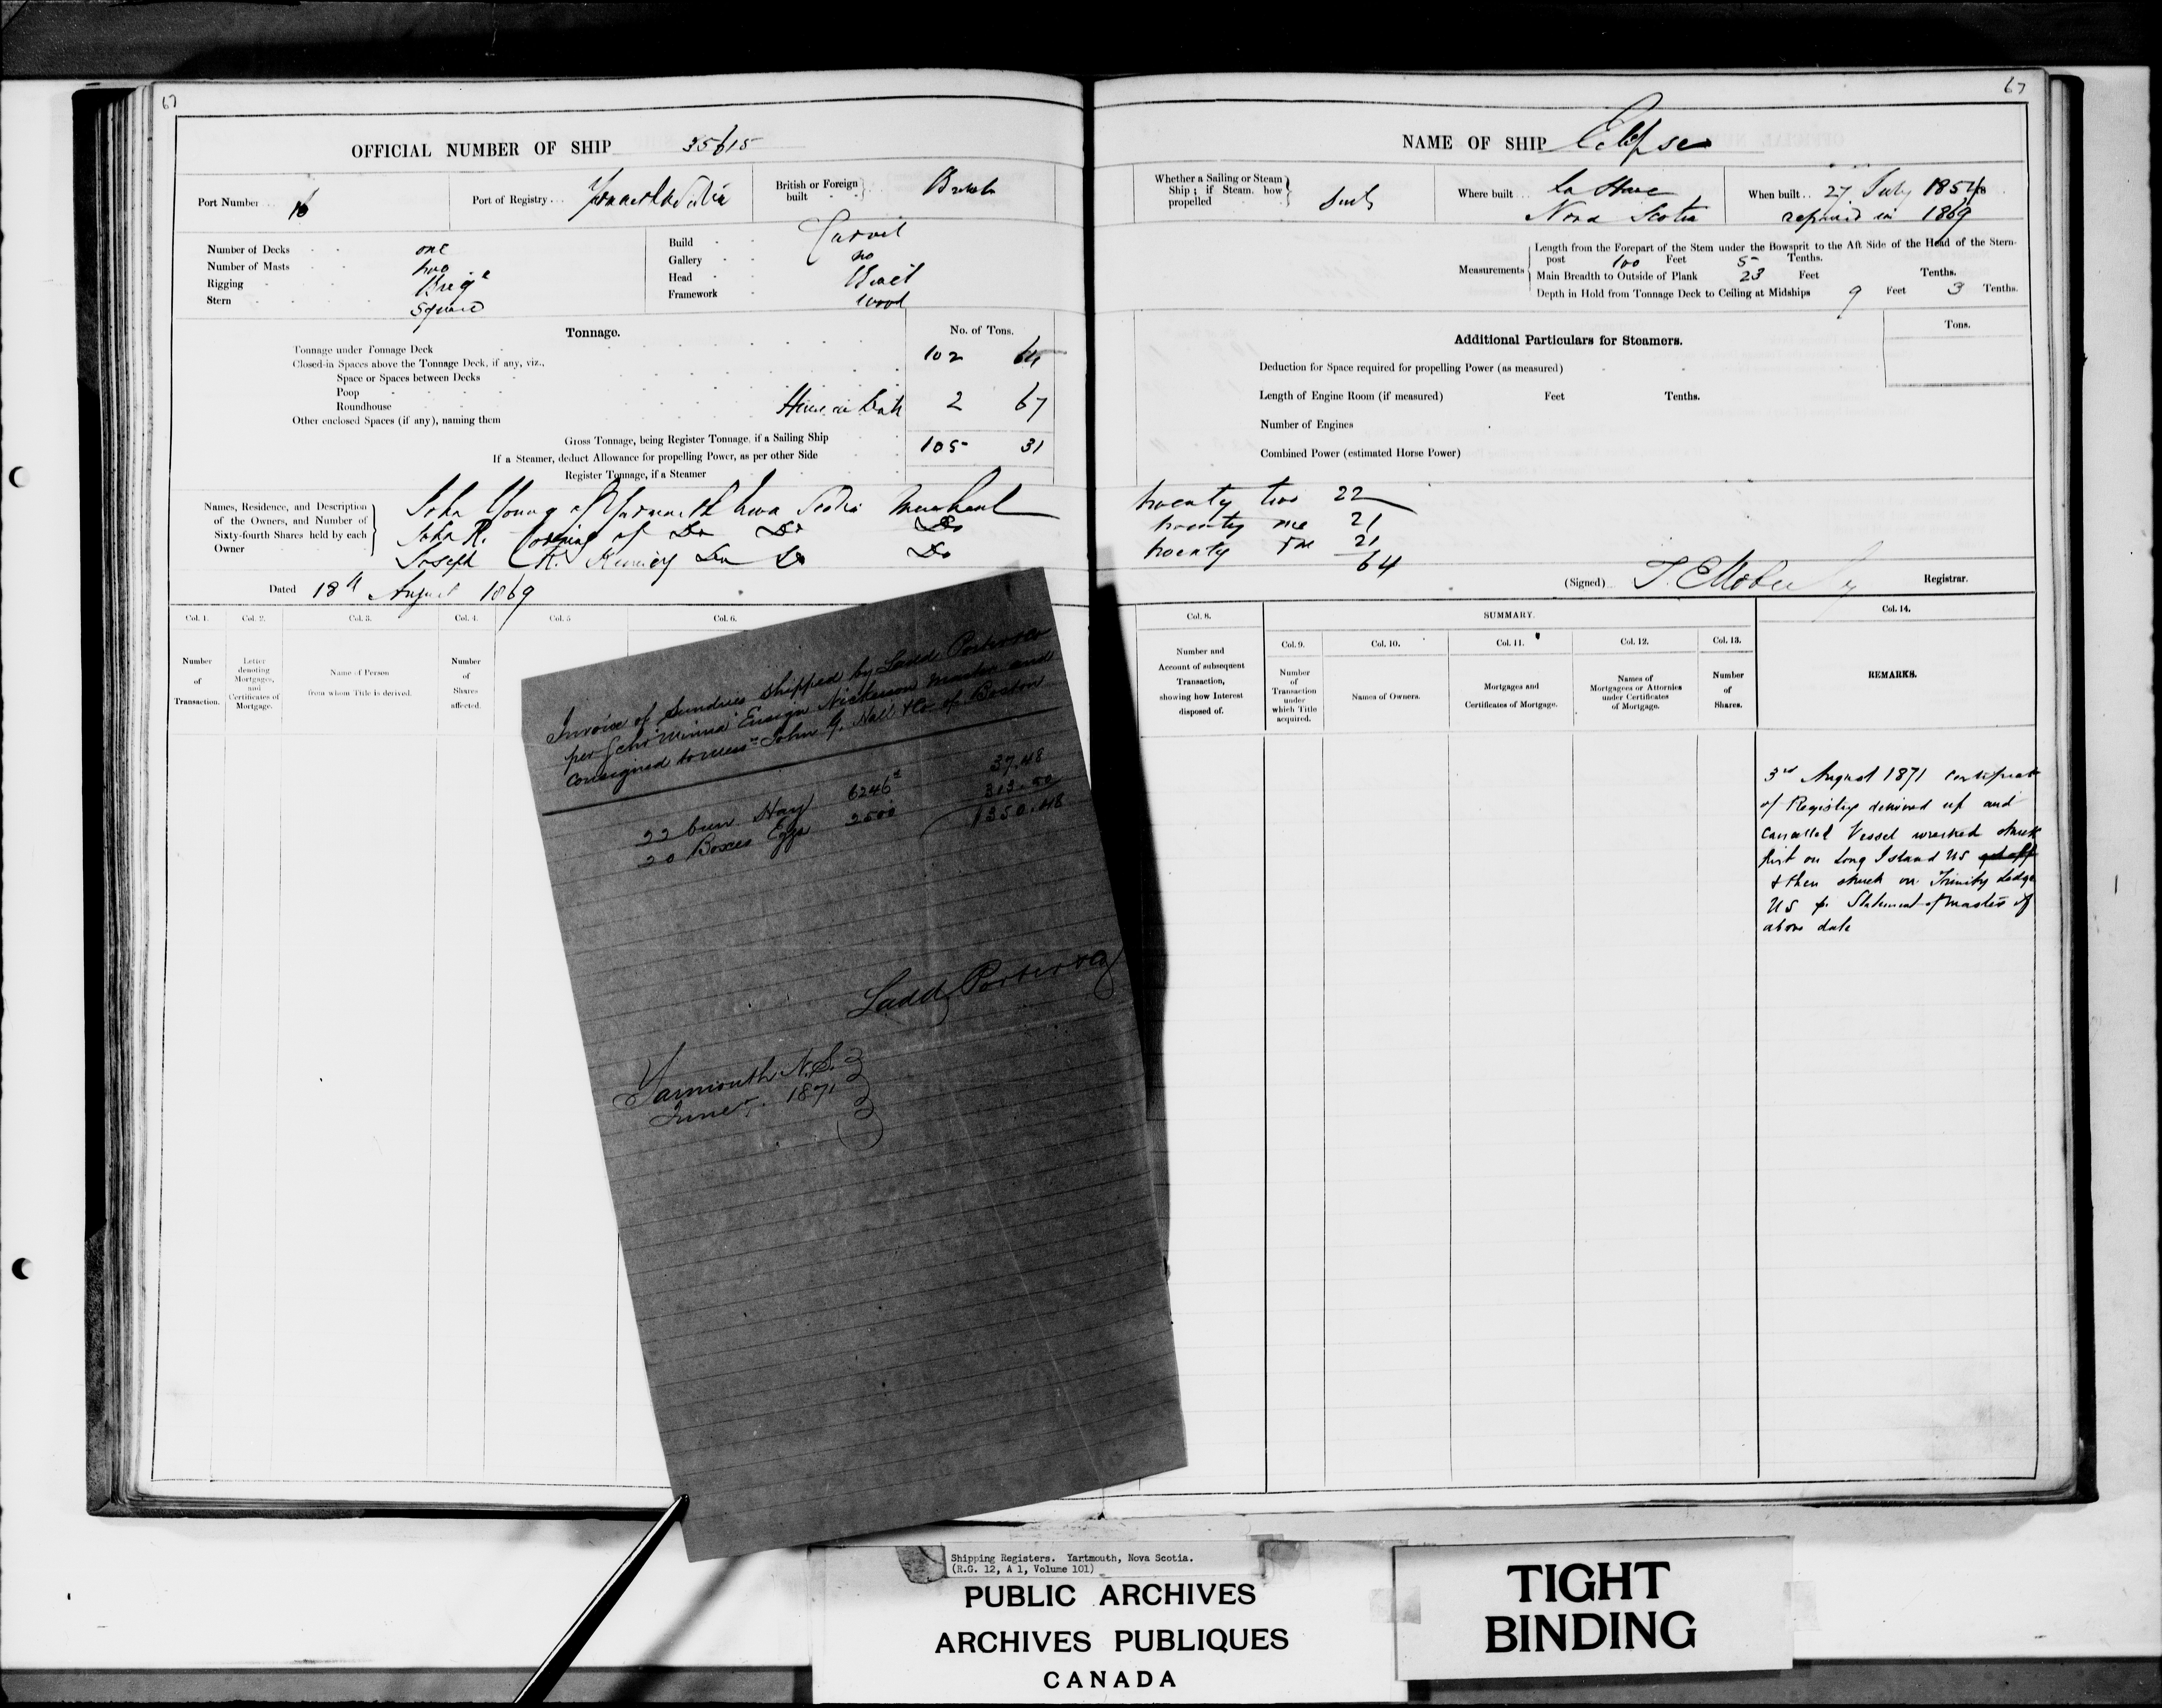 67
OFFICIAL NUMBER OF SHIP 35615
Port Number 16
Port of Registry
British or Foreign built British
Number of Decks one
Number of Masts two
Rigging Brige
Stern Square
Build Carvel
Gallery no
Head
Framework Wood
Tonnage.
No. of Tons.
Tonnage under Tonnage Deck 102 64
Closed-in Spaces above the Tonnage Deck, if any, viz.,
Space or Spaces between Decks
Poop
Roundhouse
House on Deck 2 67
Other enclosed Spaces (if any), naming them
Gross Tonnage, being Register Tonnage, if a Sailing Ship 105 31
If a Steamer, deduct Allowance for propelling Power, as per other Side
Register Tonnage, if a Steamer
Names, Residence, and Description of the Owners, and Number of Sixty-fourth Shares held by each Owner
John Young of Yarmouth Nova Scotia Merchant
John R. of Do Do Do
Joseph R. Do Do Do
Dated 18th August 1869
Col. 1.
Number of Transaction.
Col. 2.
Letter denoting Mortgages, and Certificates of Mortgage.
Col. 3.
Name of Person from whom Title is derived.
Col. 4.
Number of Shares affected.
Col. 5
Col. 6.
Invoice of Sundries Shipped by Ladd Porter & Co
per Schr "Minna" Ensign Nickerson Master and
consigned to Mess rs John G. Hall & Co of Boston
22 bun. Hay 6246 37.48
20 Boxes Eggs 2500 313.00
$350.48
Ladd Porter & Co
Yarmouth N.S.
June 1871
67
NAME OF SHIP Eclipse
Whether a Sailing or Steam Ship; if Steam, how propelled
Where built La Have
Nova Scotia
When built 27 July 1854
repaired in 1869
Measurements
Length from the Forepart of the Stem under the Bowsprit to the Aft Side of the Head of the Stern-
post 100 Feet 5 Tenths.
Main Breadth to Outside of Plank 23 Feet Tenths.
Depth in Hold from Tonnage Deck to Ceiling at Midships 9 Feet 3 Tenths.
Additional Particulars for Steamers.
Tons.
Deduction for Space required for propelling Power (as measured)
Length of Engine Room (if measured) Feet Tenths.
Number of Engines
Combined Power (estimated Horse Power)
twenty two 22
twenty one 21
twenty one 21
64
(Signed) Registrar.
Col. 8.
Number and Account of subsequent Transaction, showing how Interest disposed of.
SUMMARY.
Col. 9.
Number of Transaction under which Title acquired.
Col. 10.
Names of Owners.
Col. 11.
Mortgages and Certificates of Mortgage.
Col. 12.
Names of Mortgagees or Attornies under Certificates of Mortgage.
Col. 13.
Number of Shares.
Col. 14.
REMARKS.
3rd August 1871 Certificate
of Registry delivered up and
Cancelled Vessel wrecked struck
first on Long Island NS got off
& then struck on Trinity Ledge
NS pr Statement of Master of
above date
Shipping Registers. Yartmouth, Nova Scotia.
(R.G. 12, A 1, Volume 101)
PUBLIC ARCHIVES
ARCHIVES PUBLIQUES
CANADA
TIGHT
BINDING